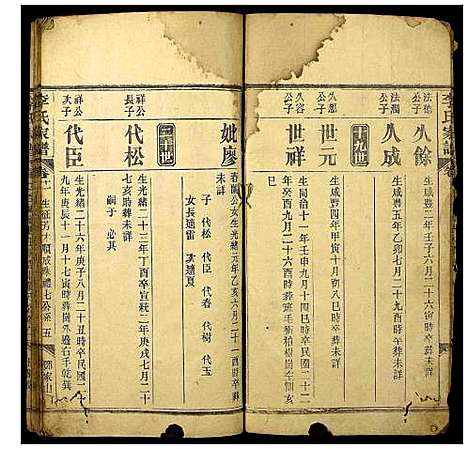 李氏家譜
法德公子
久餘
生咸豐二年壬子六月二十六寅時卒葬未詳
法潤公子
久成
生咸豐五年乙卯七月二十九酉時卒葬未詳
十九世
久恕公子
世元
生咸豐四年甲寅十月初八巳時卒葬未詳
久容公子
世祥
生同治十一年壬申九月十四寅時卒民國二十二
年癸酉九月二十六酉時葬
樹
亥
妣廖
春
公女生光緒元年乙亥六月二十一酉時卒葬
未詳
子 代松 代臣 代看 代樹 代玉
女長適雷 次適夏
二十世
祥公長子
代松
生光緒二十三年丁酉卒宣統二年庚戌七月二十
七亥時葬未詳
嗣子 必其
祥公次子
代臣
生光緒二十六年庚子八月二十丑時卒民國二十
九年庚辰十一月十七寅時葬
外邊右手乾巽
李氏家譜
卷十一
生征芳才順成
禮七公
五
鄧家山